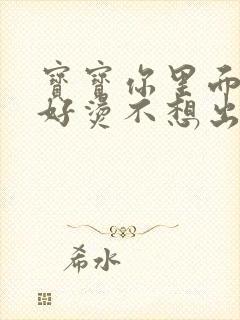 寶寶你里面
好燙不想出
希水